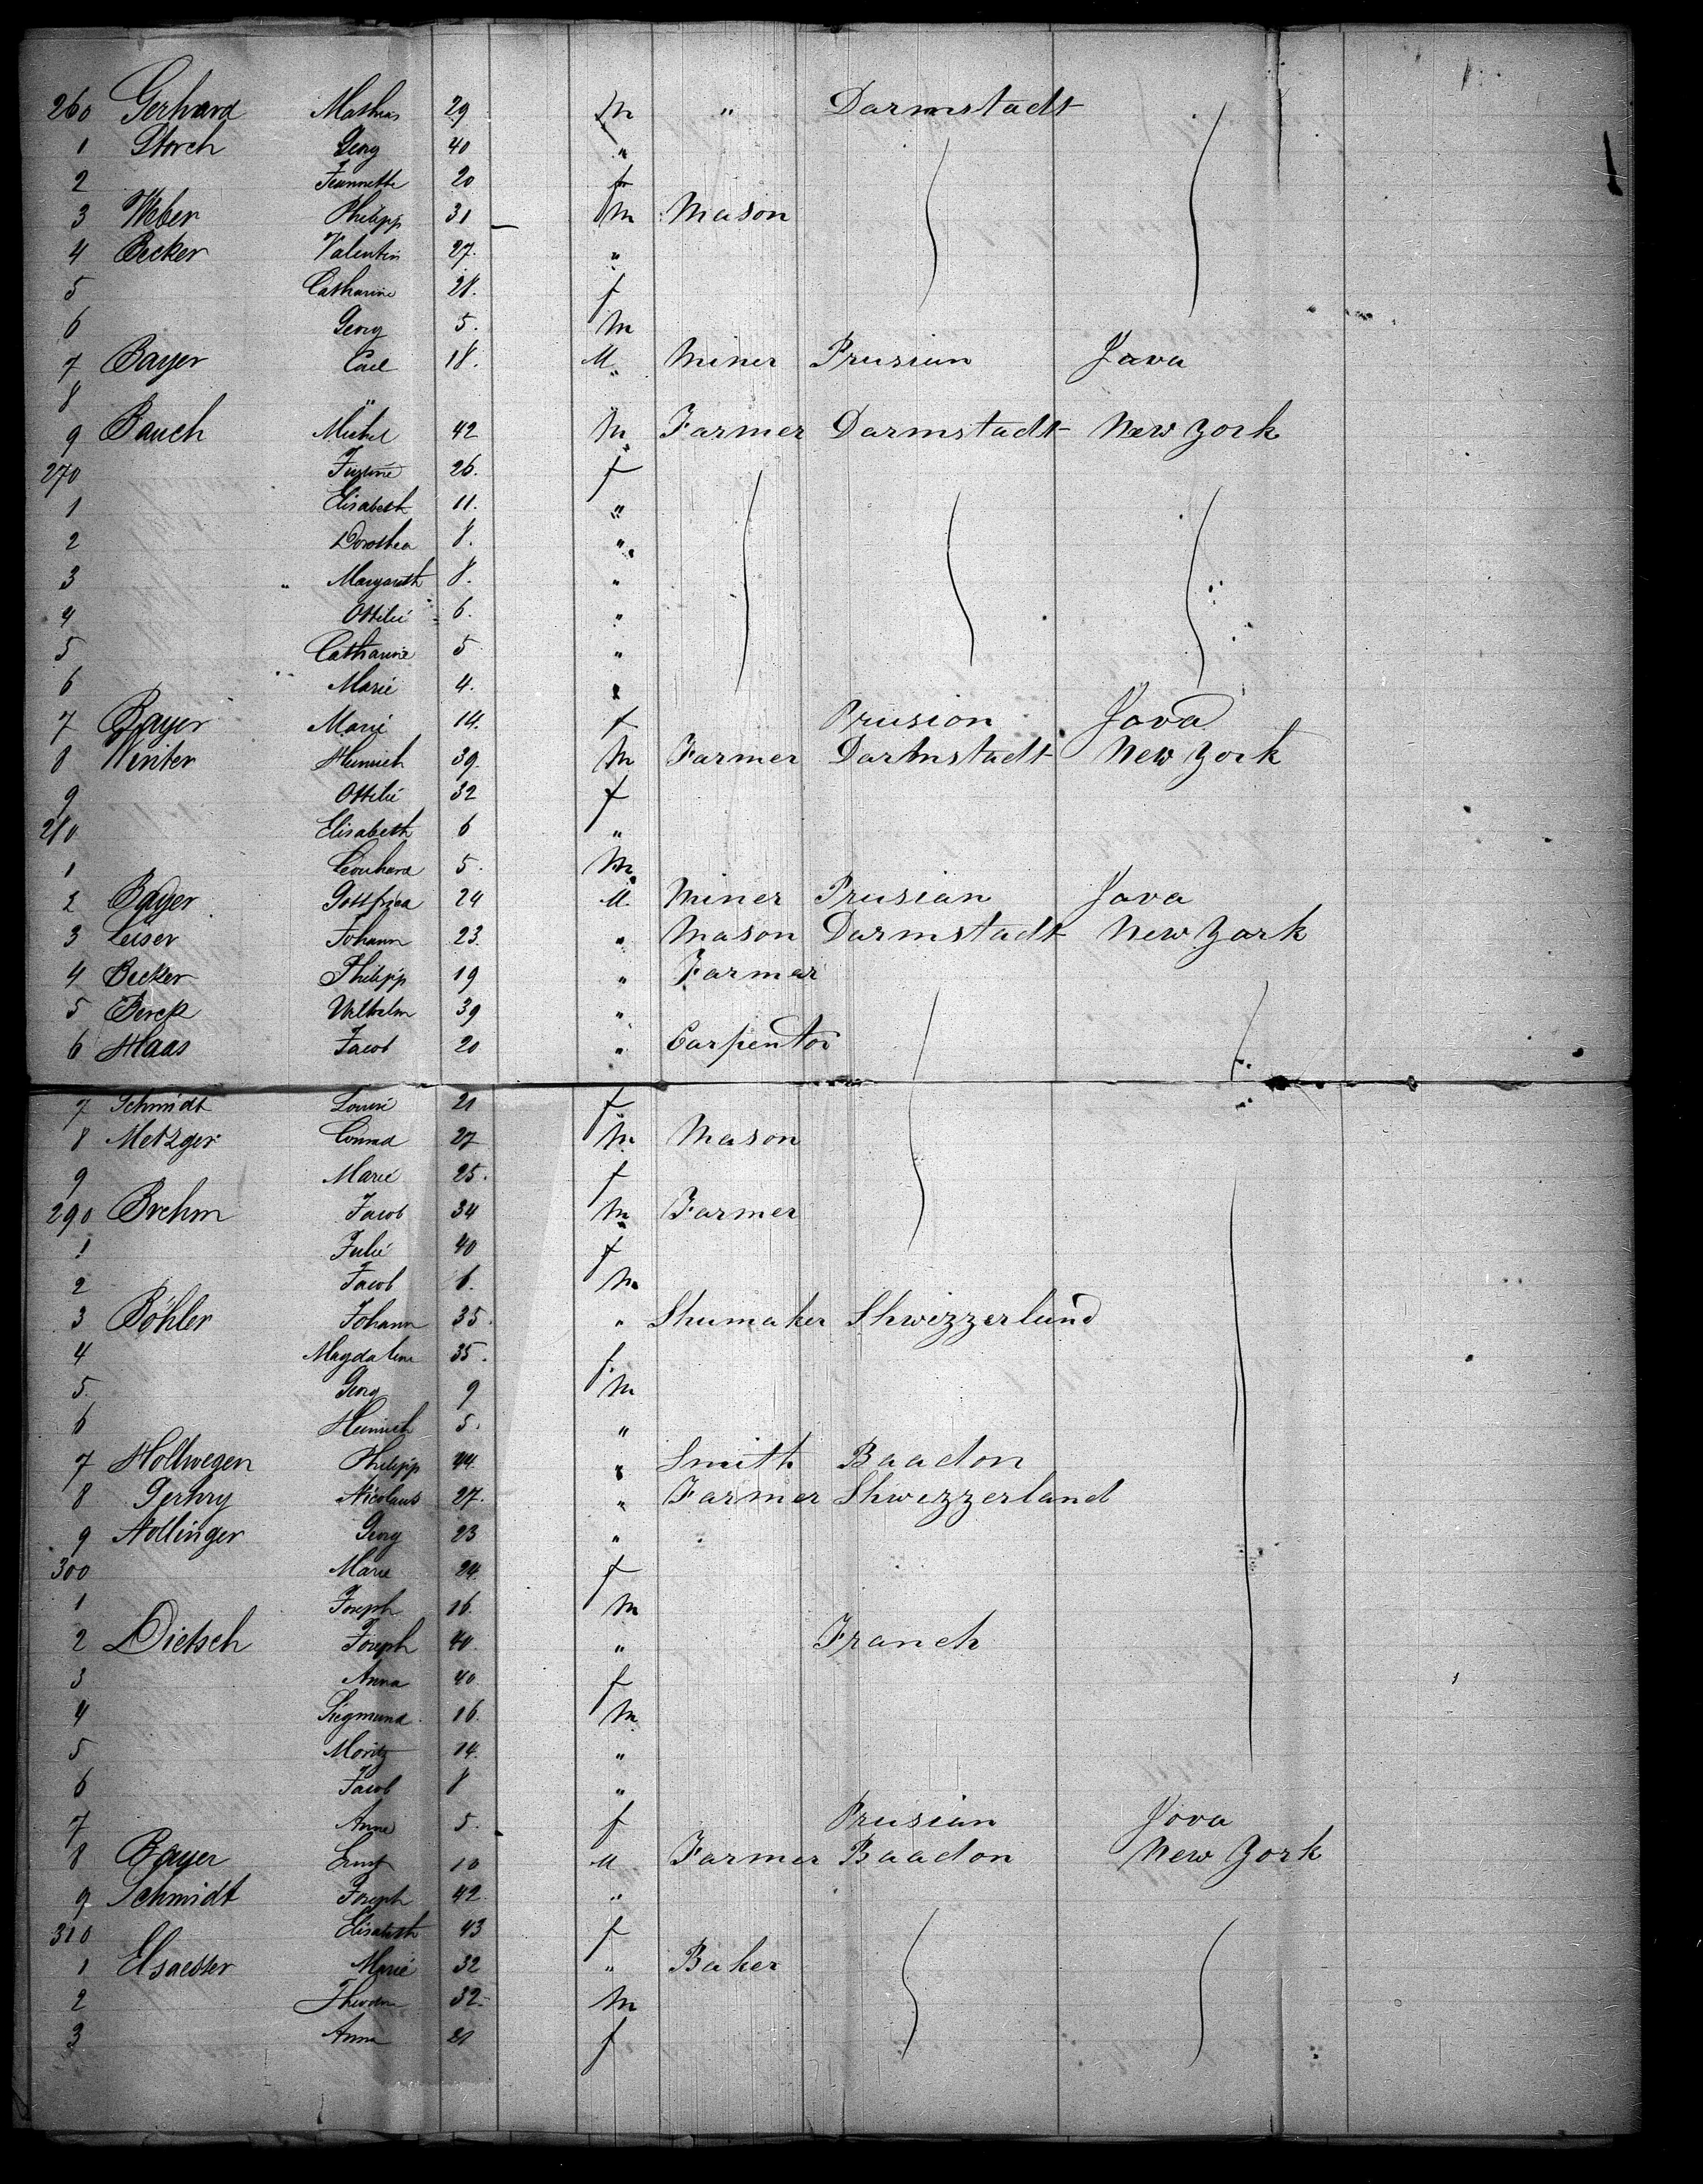 260 Gerhard Mathias 29 m " Darmstadt
1 Storch Georg 40 "
2 Jeannette 20 f
3 Weber Philipp 31 m Mason
4 Becker Valentin 27. "
5 Catharine 28. f
6 Georg 5. m
7 Bayer Carl 18. M Miner Prusian Java
8 "
9 Bauch Michel 42 m Farmer Darmstadt New York
270 26. f
1 Elisabeth 11. "
2 Dorothea 8. "
3 " Margareth 8. "
4 Ottilie 6. "
5 Catharine 5 "
6 Marie 4. "
7 Bayer Marie 14. f Prusion Java
8 Winter Heinrich 39 m Farmer Darmstadt New York
9 Ottilie 32 f
280 Elisabeth 6 "
1 Leonhard 5. m
2 Bayer Gottfried 24 M. Miner Prusian Java
3 Leiser Johann 23. " Mason Darmstadt New York
4 Becker Philipp 19 " Farmer
5 Berck Wilhelm 39 "
6 Haas Jacob 20 " Carpentor
7 Schmidt Louise 21 f
8 Metzger Conrad 27 m Mason
9 Marie 25. f
290 Brehm Jacob 34 m Farmer
1 Julie 40 f
2 Jacob 6. m
3 Böhler Johann 35. " Shumaker Shwizzerland
4 Magdalena 35. f.
5. Georg 9 m
6 Heinrich 5. "
7 Hollwegen Philipp 24. " Smith Baadon
8 Nicolaus 27. " Farmer Shwizzerland
9 Nollinger Georg 23 "
300 Marie 24. f
1 Joseph 16. m
2 Dietsch Joseph 40. " Franch
3 Anna 40. f
4 Siegmund 16. m
5 Moritz 14. "
6 Jacob 8 "
7 Anne 5. f Prusian Java
8 Bayer Ernst 10 M Farmer Baadon New York
9 Schmidt Joseph 42 "
310 Elisabeth 43 f
1 Elsaesser Marie 32 " Baker
2 Theodor 32. m
3 Anna 21 f